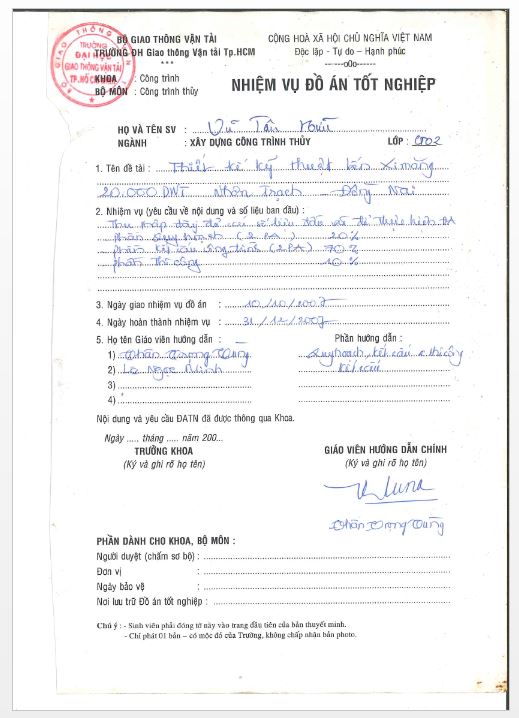 BỘ GIAO THÔNG VẬN TẢI
TRƯỜNG ĐH Giao thông Vận tải Tp.HCM
***
KHOA : Công trình
BỘ MÔN : Công trình thủy
CỘNG HOÀ XÃ HỘI CHỦ NGHĨA VIỆT NAM
Độc lập - Tự do – Hạnh phúc
------o0o------
TRƯỜNG
ĐẠI HỌC
GIAO THÔNG VẬN TẢI
TP. HỒ CHÍ MINH
NHIỆM VỤ ĐỒ ÁN TỐT NGHIỆP
HỌ VÀ TÊN SV : Vũ Tấn
NGÀNH : XÂY DỰNG CÔNG TRÌNH THỦY LỚP : CT02
1. Tên đề tài : Thiết kế kỹ thuật bến Ximăng
20.000 DWT Nhơn Trạch - Đồng Nai
2. Nhiệm vụ (yêu cầu về nội dung và số liệu ban đầu) :
Thu thập đầy đủ các số liệu đầu và để thực hiện ĐA
phần Quy hoạch (2 PA) 20%
phần kết cấu công trình (2 PA) 70%
phần thi công 10%
3. Ngày giao nhiệm vụ đồ án : 10/10/2007
4. Ngày hoàn thành nhiệm vụ : 31/12/2007
5. Họ tên Giáo viên hướng dẫn : Phần hướng dẫn :
1) Trần Trọng Dũng Quy hoạch, kết cấu & thi công
2) Lê Ngọc Minh kết cấu
3)
4)
Nội dung và yêu cầu ĐATN đã được thông qua Khoa.
Ngày ..... tháng ..... năm 200...
TRƯỞNG KHOA
(Ký và ghi rõ họ tên)
GIÁO VIÊN HƯỚNG DẪN CHÍNH
(Ký và ghi rõ họ tên)
Trần Trọng Dũng
PHẦN DÀNH CHO KHOA, BỘ MÔN :
Người duyệt (chấm sơ bộ) :
Đơn vị :
Ngày bảo vệ :
Nơi lưu trữ Đồ án tốt nghiệp :
Chú ý : - Sinh viên phải đóng tờ này vào trang đầu tiên của bản thuyết minh.
- Chỉ phát 01 bản – có mộc đỏ của Trường, không chấp nhận bản photo.